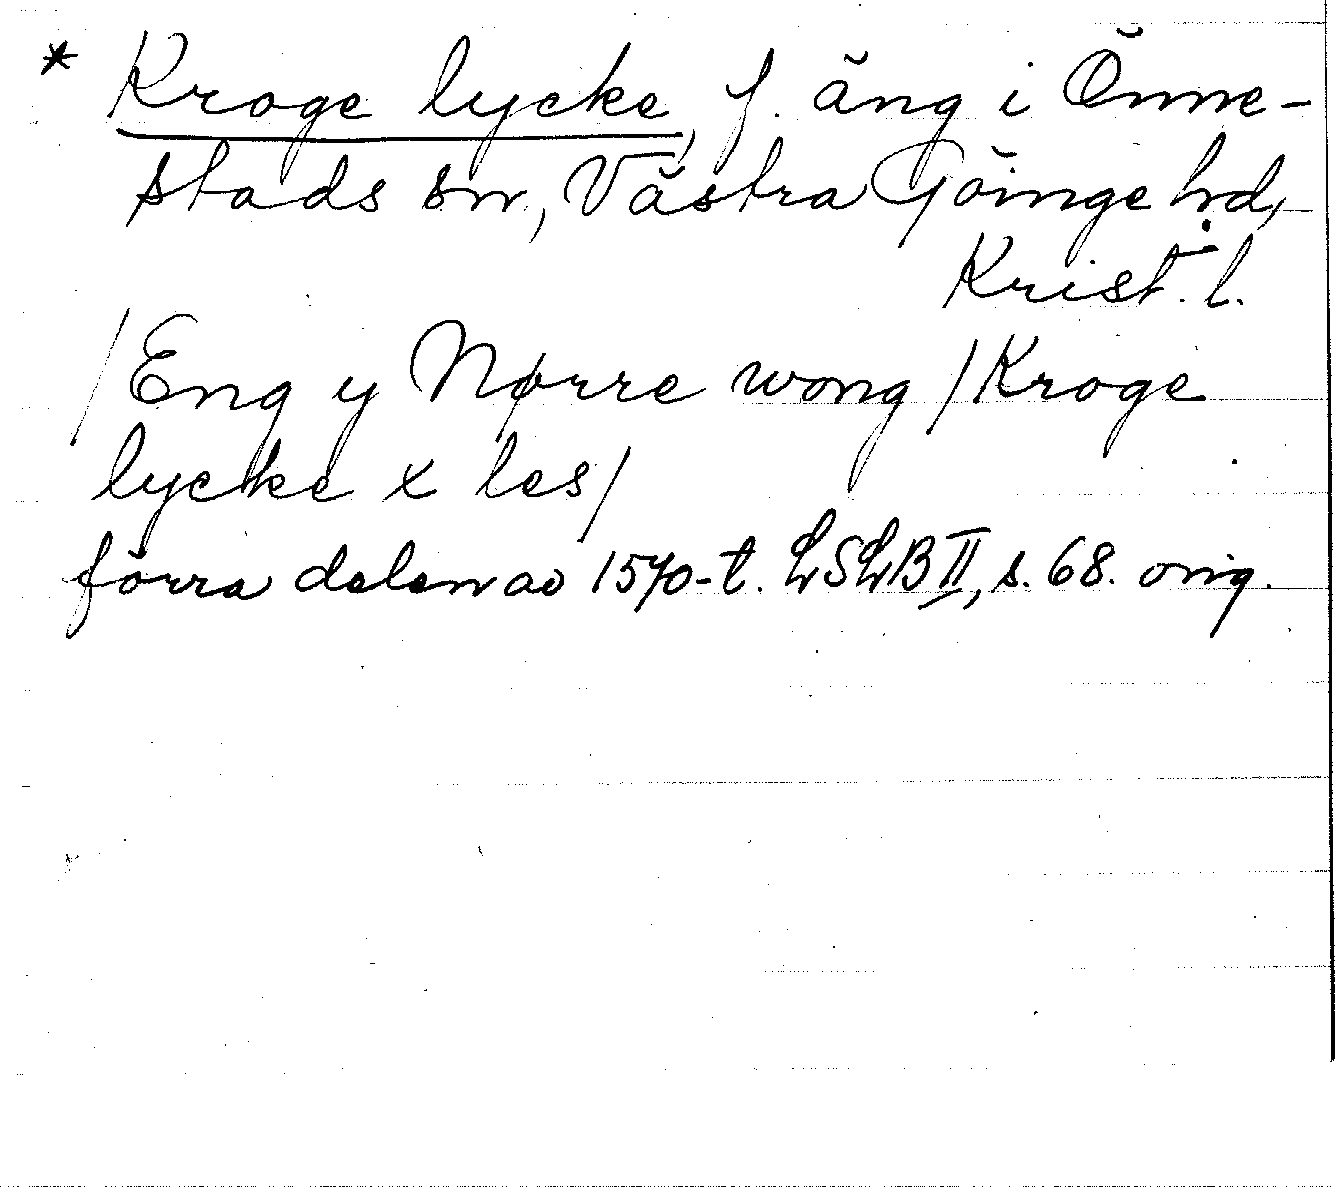 * Kroge lycke, f. äng i Önne-
stads sn, Västra Göinge hd,
Krist. l.
/Eng y Nørre wong /Kroge
lycke x les/
förra delen av 1570-t. LSLB II, s. 68. orig.